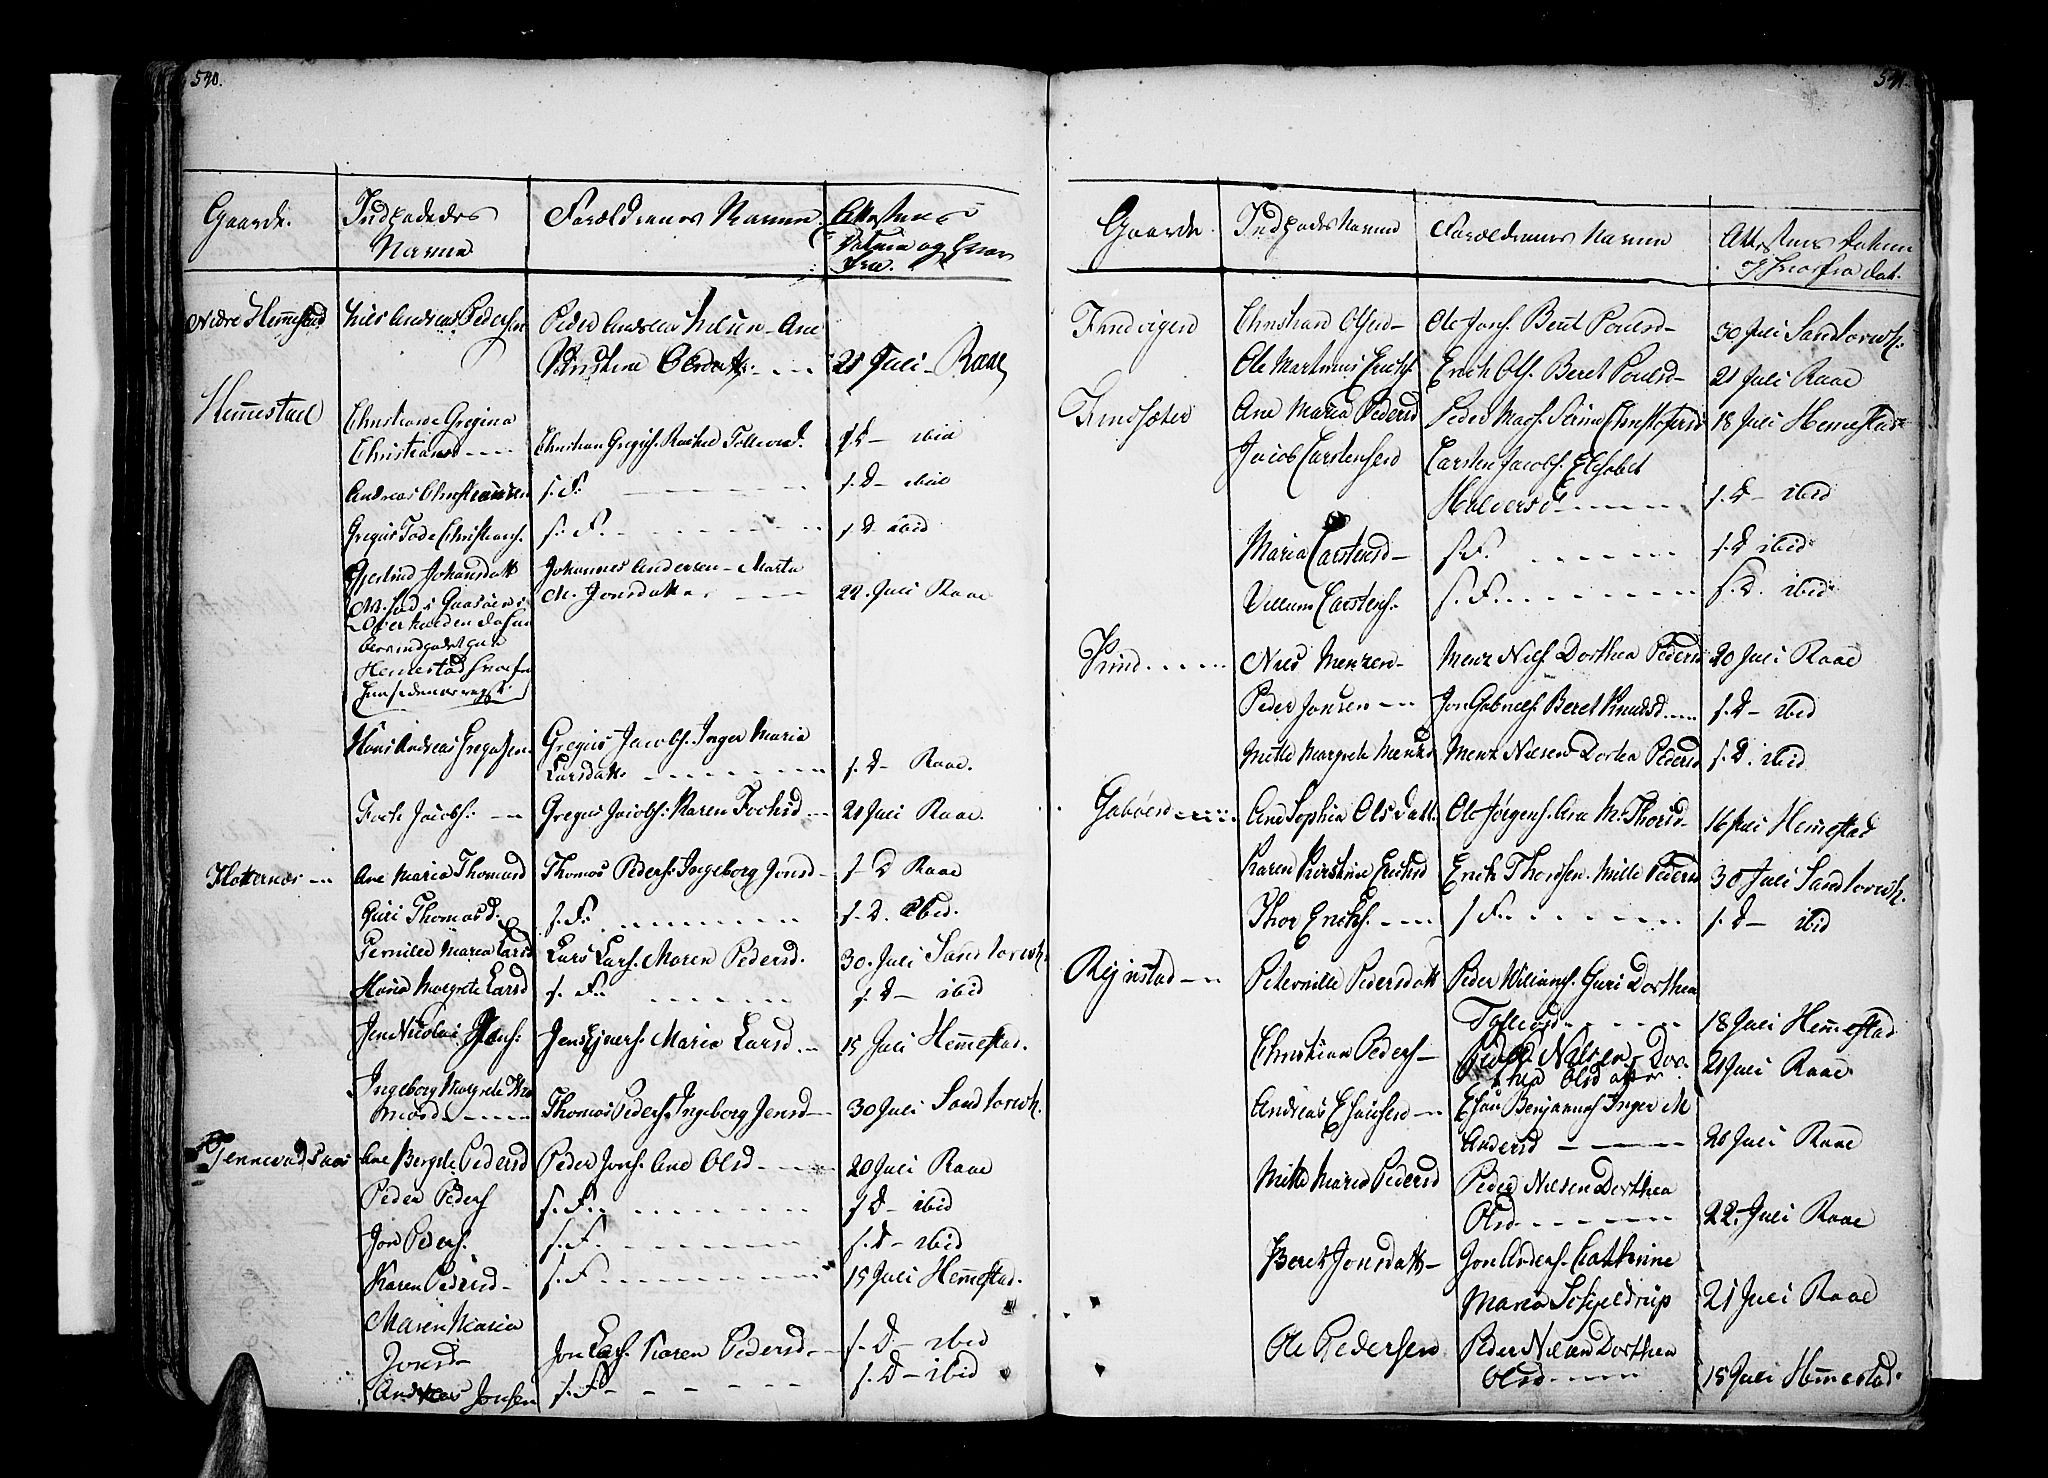 540.
Gaarde. Indpodedes Navne Forældrenes Navne Attestens Datum og hvor fra.
Nedre Hemmestad Niels Andreas Pedersen Peder Andreas Nielsen - Ane
Kirstine Olsdatt. - - - 21 Juli - Raae
Hemmestad Christiane Gregina
Christiansd - - - Christian Gregus. Rachel Tollevsd. s. D - ibid
Andreas Christiansen s. F. - - - s. D - ibid
Gregus Tode Christians. s. F. - - - s. D - ibid
Gjertrud Johansdatt Johannes Andersen - Marta
M. Jonsdatter - - - 22. Juli Raae
Hemmestad
Hans Andreas Gregussen Gregus Jacobs. Inger Maria
Larsdatt - - - s. D - Raae.
Foch Jacobs. - - Gregus Jacobs: Karen Fochsd - - 21 Juli Raae.
Flotternæs - - Ane Maria Thomasd Thomas Peders: Ingeborg Jonsd - s - D Raae
Guri Thomasd. s. F. - - - s - D. ibid.
Pernille Maria Larsd Lars Lars. Maren Pedersd. 30. Juli Sandtorvh.
Maria Margrete Larsd s. F. - - - s. D - ibid
Jens Nicolai Jens: Jens Ejners. Maria Larsd - - 15 Juli Hemmestad.
Ingeborg Margrete Tho
masd - - - Thomas Peders Ingeborg Jensd - - 30 Juli Sandtorvh.
Tennevadsaas Ane Bergete Pedersd Peder Jons. Ane Olsd - - - 20 Juli Raae
Peder Peders s. F. - - - s D - ibid
Jon Peders. s. F. - - - s. D - ibid
Karen Pedersd - s. F. - - - 15 Juli Hemmestad.
Maren Maria
Jonsd - Jon Lars. Karen Pedersd - - s - D - ibid
Andreas Jonsen s. F. - - - s. D - ibid
541.
Gaarde. Indpodes Navne Forældrenes Navne Attestens Datum og hvorfra dat.
Christian Olsen - Ole Jons. Beret Poulsd - 30 Juli Sandtorvh.
Ole Martinus Erichs. Erich Ols. Beret Poulsd - 21 Juli Raae
Ane Maria Pedersd Peder Mags. Sirina Christofersd 18 Juli Hemmestad
Jacob Carstensen Carsten Jacobs. Elisabet
Halversd - - - s. D - ibid
Maria Carstensd - s. F. - - - s. D ibid
Villum Carstens. s. F. - - - s. D. ibid
Niels Menzen - Menz Niels. Dorthea Pedersd 20 Juli Raae
Peder Jonsen - - Jon Gabriels. Beret Knudsd - - s. D - ibid
Mette Margrete Menzd Menz Nielsen Dortea Pedersd s. D. ibid
Gaboen - - - Ane Sophia Olsdatt. Ole Jørgens. Ane M. Thorsd - 16 Juli Hemmestad
Karen Kirstine Erichsd Erich Thorssen. Mille Pedersd 30 Juli Sandtorvh.
Thor Erichs. - - - s F. - - - s. D - ibid
Rejnstad - - Peternille Pedersdatt Peder Williams. Guri Dorthea
Tollevsd - - - 18 Juli Hemmestad
Christian Peders - Peder Nielsen Dor-
thea Olsdatter 21 Juli Raae
Andreas Esaiesen - - Esau Benjamins Inger M
Andersd - - - 20 Juli Raae
Mette Maria Pedersd Peder Nielsen Dorthea
Olsd - - - 22. Juli Raae
Beret Jonsdatt - Jon Anders. Cathrine
Maria Schjeldrup 21 Juli Raae
Ole Pedersen Peder Nielsen Dorthea
Olsd - - - 15 Juli Hemmestad.